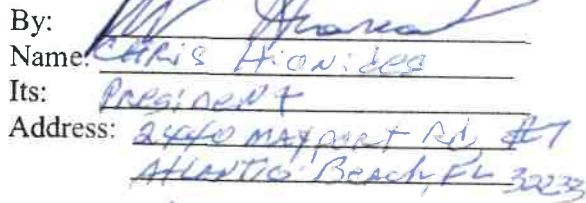 By:
Name: CHRIS HIONIDES
Its: PRESIDENT
Address: 2440 MAYPORT Rd, #7
ATLANTIC Beach, FL 30233